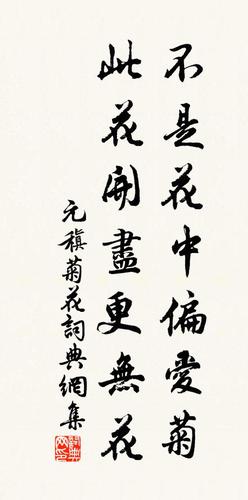 不是花中偏愛菊
此花開盡更無花
元稹菊花詞典網集